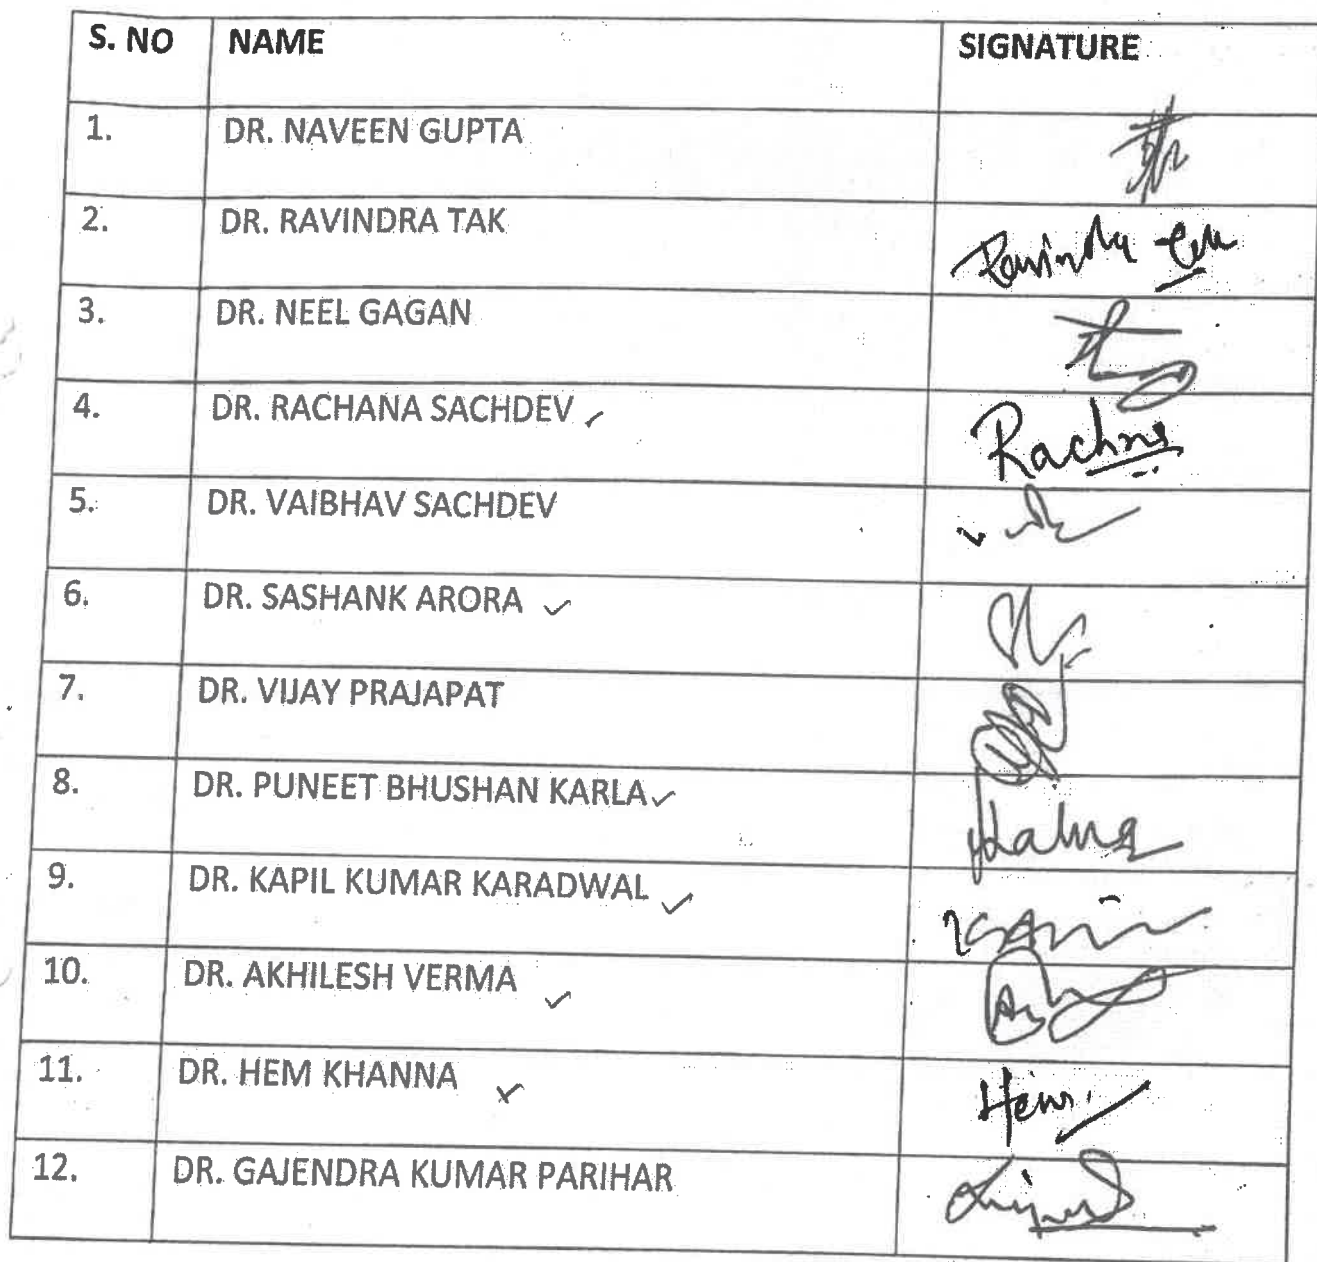 S. NO NAME SIGNATURE
1. DR. NAVEEN GUPTA
2. DR. RAVINDRA TAK Ravindra Tak
3. DR. NEEL GAGAN
4. DR. RACHANA SACHDEV ✓ Rachna
5. DR. VAIBHAV SACHDEV
6. DR. SASHANK ARORA ✓
7. DR. VIJAY PRAJAPAT
8. DR. PUNEET BHUSHAN KARLA ✓
9. DR. KAPIL KUMAR KARADWAL ✓
10. DR. AKHILESH VERMA ✓
11. DR. HEM KHANNA ✓ Hem
12. DR. GAJENDRA KUMAR PARIHAR